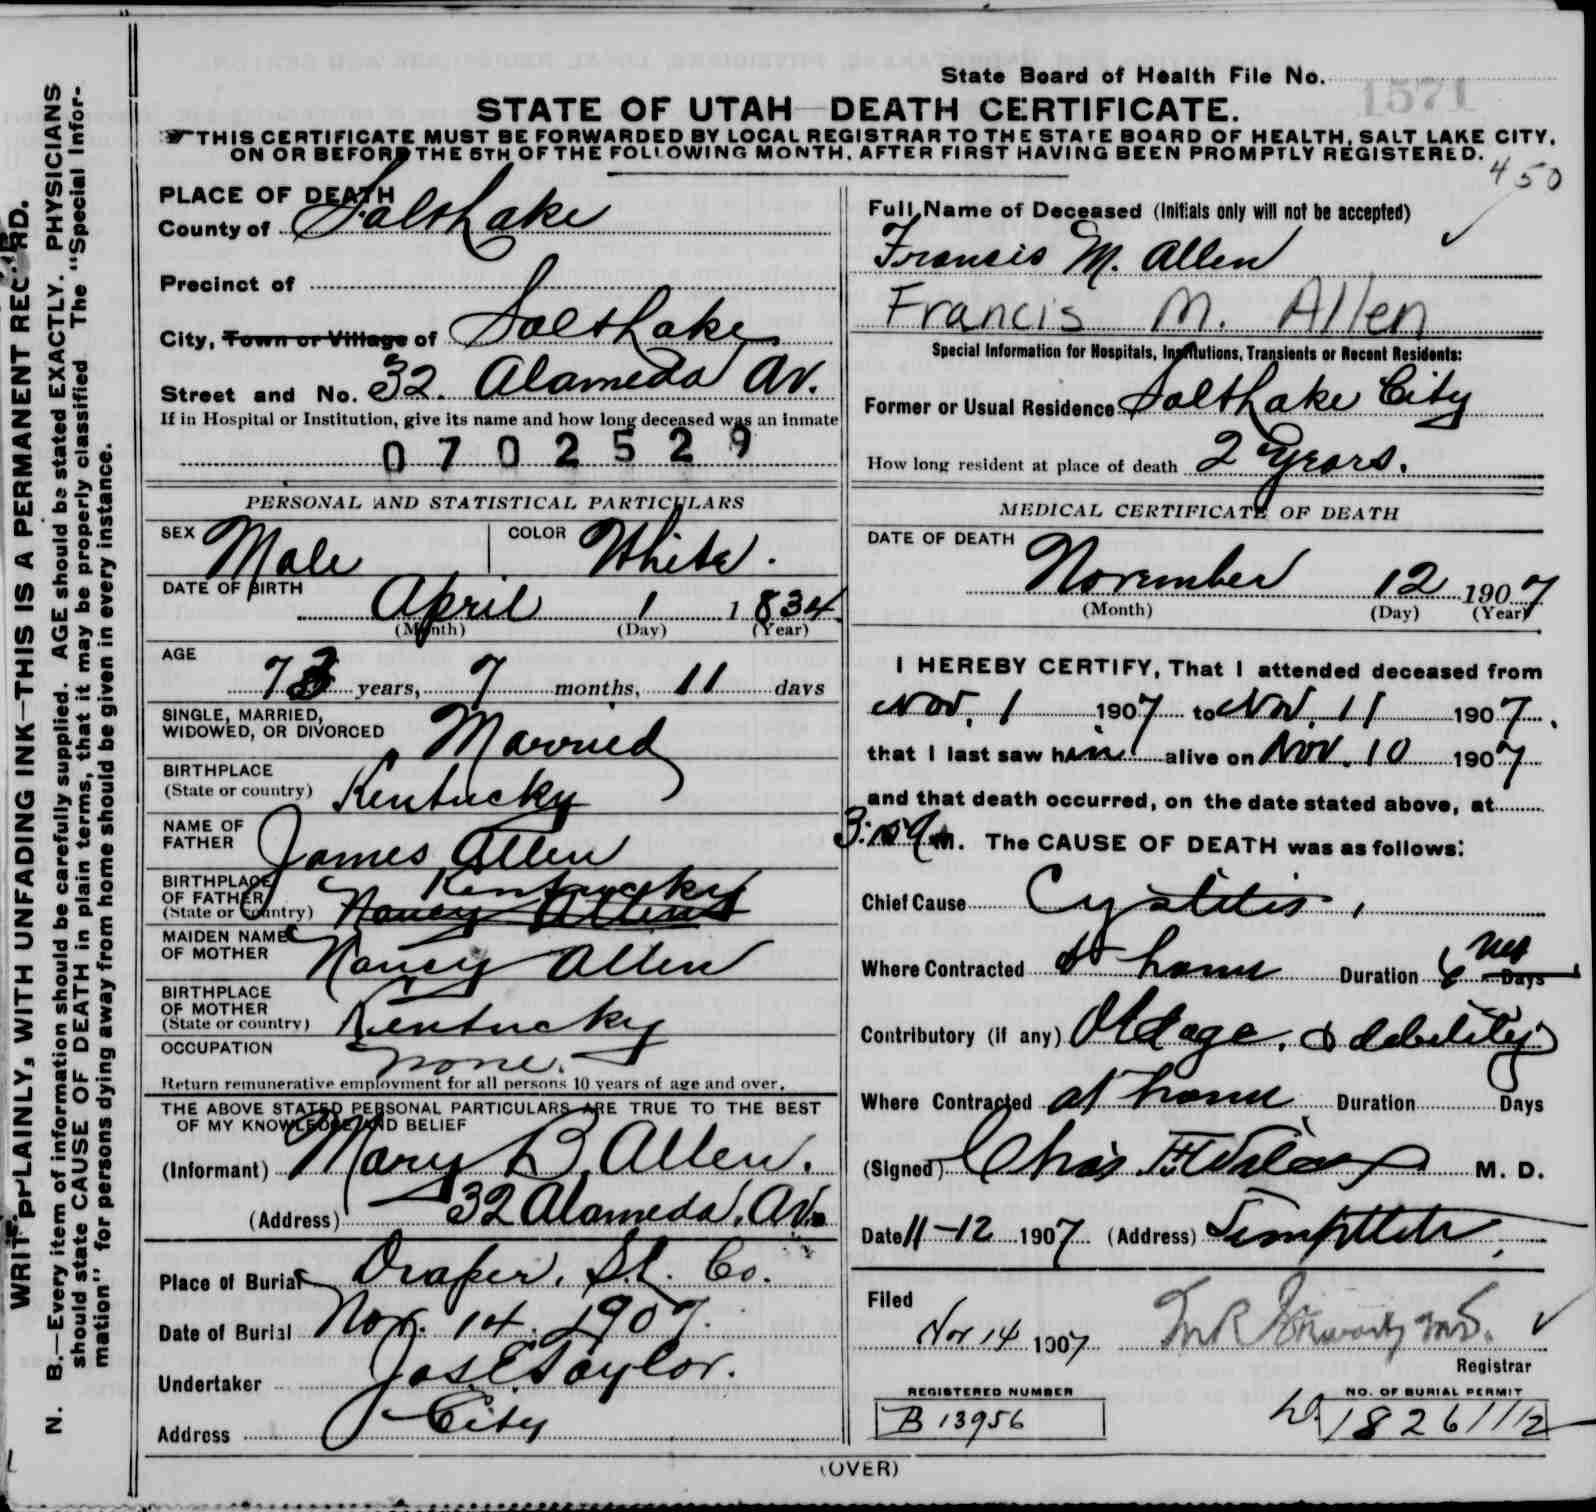 WRITE PLAINLY, WITH UNFADING INK—THIS IS A PERMANENT RECORD.
N. B.—Every item of information should be carefully supplied. AGE should be stated EXACTLY. PHYSICIANS
should state CAUSE OF DEATH in plain terms, that it may be properly classified The "Special Infor-
mation" for persons dying away from home should be given in every instance.
State Board of Health File No. 1571
STATE OF UTAH—DEATH CERTIFICATE.
THIS CERTIFICATE MUST BE FORWARDED BY LOCAL REGISTRAR TO THE STATE BOARD OF HEALTH, SALT LAKE CITY,
ON OR BEFORE THE 5TH OF THE FOLLOWING MONTH, AFTER FIRST HAVING BEEN PROMPTLY REGISTERED.
450
PLACE OF DEATH
County of Salt Lake
Precinct of
City, Town or Village of Salt Lake
Street and No. 32. Alameda Av.
If in Hospital or Institution, give its name and how long deceased was an inmate
0702529
PERSONAL AND STATISTICAL PARTICULARS
SEX Male COLOR White.
DATE OF BIRTH
April 1 1834
(Month) (Day) (Year)
AGE
73 years, 7 months, 11 days
SINGLE, MARRIED,
WIDOWED, OR DIVORCED Married
BIRTHPLACE
(State or country) Kentucky
NAME OF
FATHER James Allen
BIRTHPLACE
OF FATHER Kentucky
(State or Country) Nancy Allen
MAIDEN NAME
OF MOTHER Nancy Allen
BIRTHPLACE
OF MOTHER
(State or country) Kentucky
OCCUPATION none.
Return remunerative employment for all persons 10 years of age and over.
THE ABOVE STATED PERSONAL PARTICULARS ARE TRUE TO THE BEST
OF MY KNOWLEDGE AND BELIEF
(Informant) Mary B. Allen.
(Address) 32 Alameda. Av.
Place of Burial Draper. S.L. Co.
Date of Burial Nov. 14. 1907.
Undertaker Jos. E. Taylor.
Address City
Full Name of Deceased (Initials only will not be accepted)
Francis M. Allen
Francis M. Allen
Special Information for Hospitals, Institutions, Transients or Recent Residents:
Former or Usual Residence Salt Lake City
How long resident at place of death 2 years.
MEDICAL CERTIFICATE OF DEATH
DATE OF DEATH
November 12 1907
(Month) (Day) (Year)
I HEREBY CERTIFY, That I attended deceased from
Nov. 1 1907 to Nov. 11 1907,
that I last saw him alive on Nov. 10 1907
and that death occurred, on the date stated above, at
M. The CAUSE OF DEATH was as follows:
Chief Cause Cystitis,
Where Contracted at home Duration 6 Days
Contributory (if any) Old age. & debility
Where Contracted at home Duration Days
(Signed) Chas. M. D.
Date 11-12 1907 (Address)
Filed
Nov 14 1907
Registrar
REGISTERED NUMBER
B 13956
NO. OF BURIAL PERMIT
18261 1/12
(OVER)